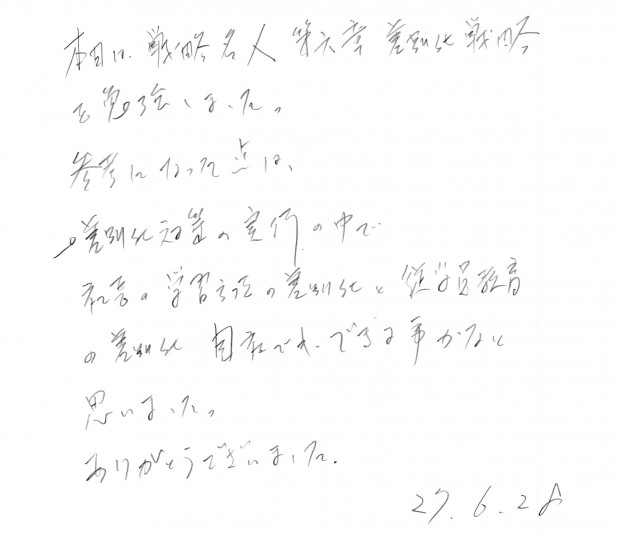 本日は、戦略名人 第六章 差別化戦略
を勉強しました。
参考になった点は、
差別化対策の実行の中で
社長の学習方法の差別化と従業員教育
の差別化 自社でも、できる事かなと
思いました。
ありがとうございました。
27.6.28